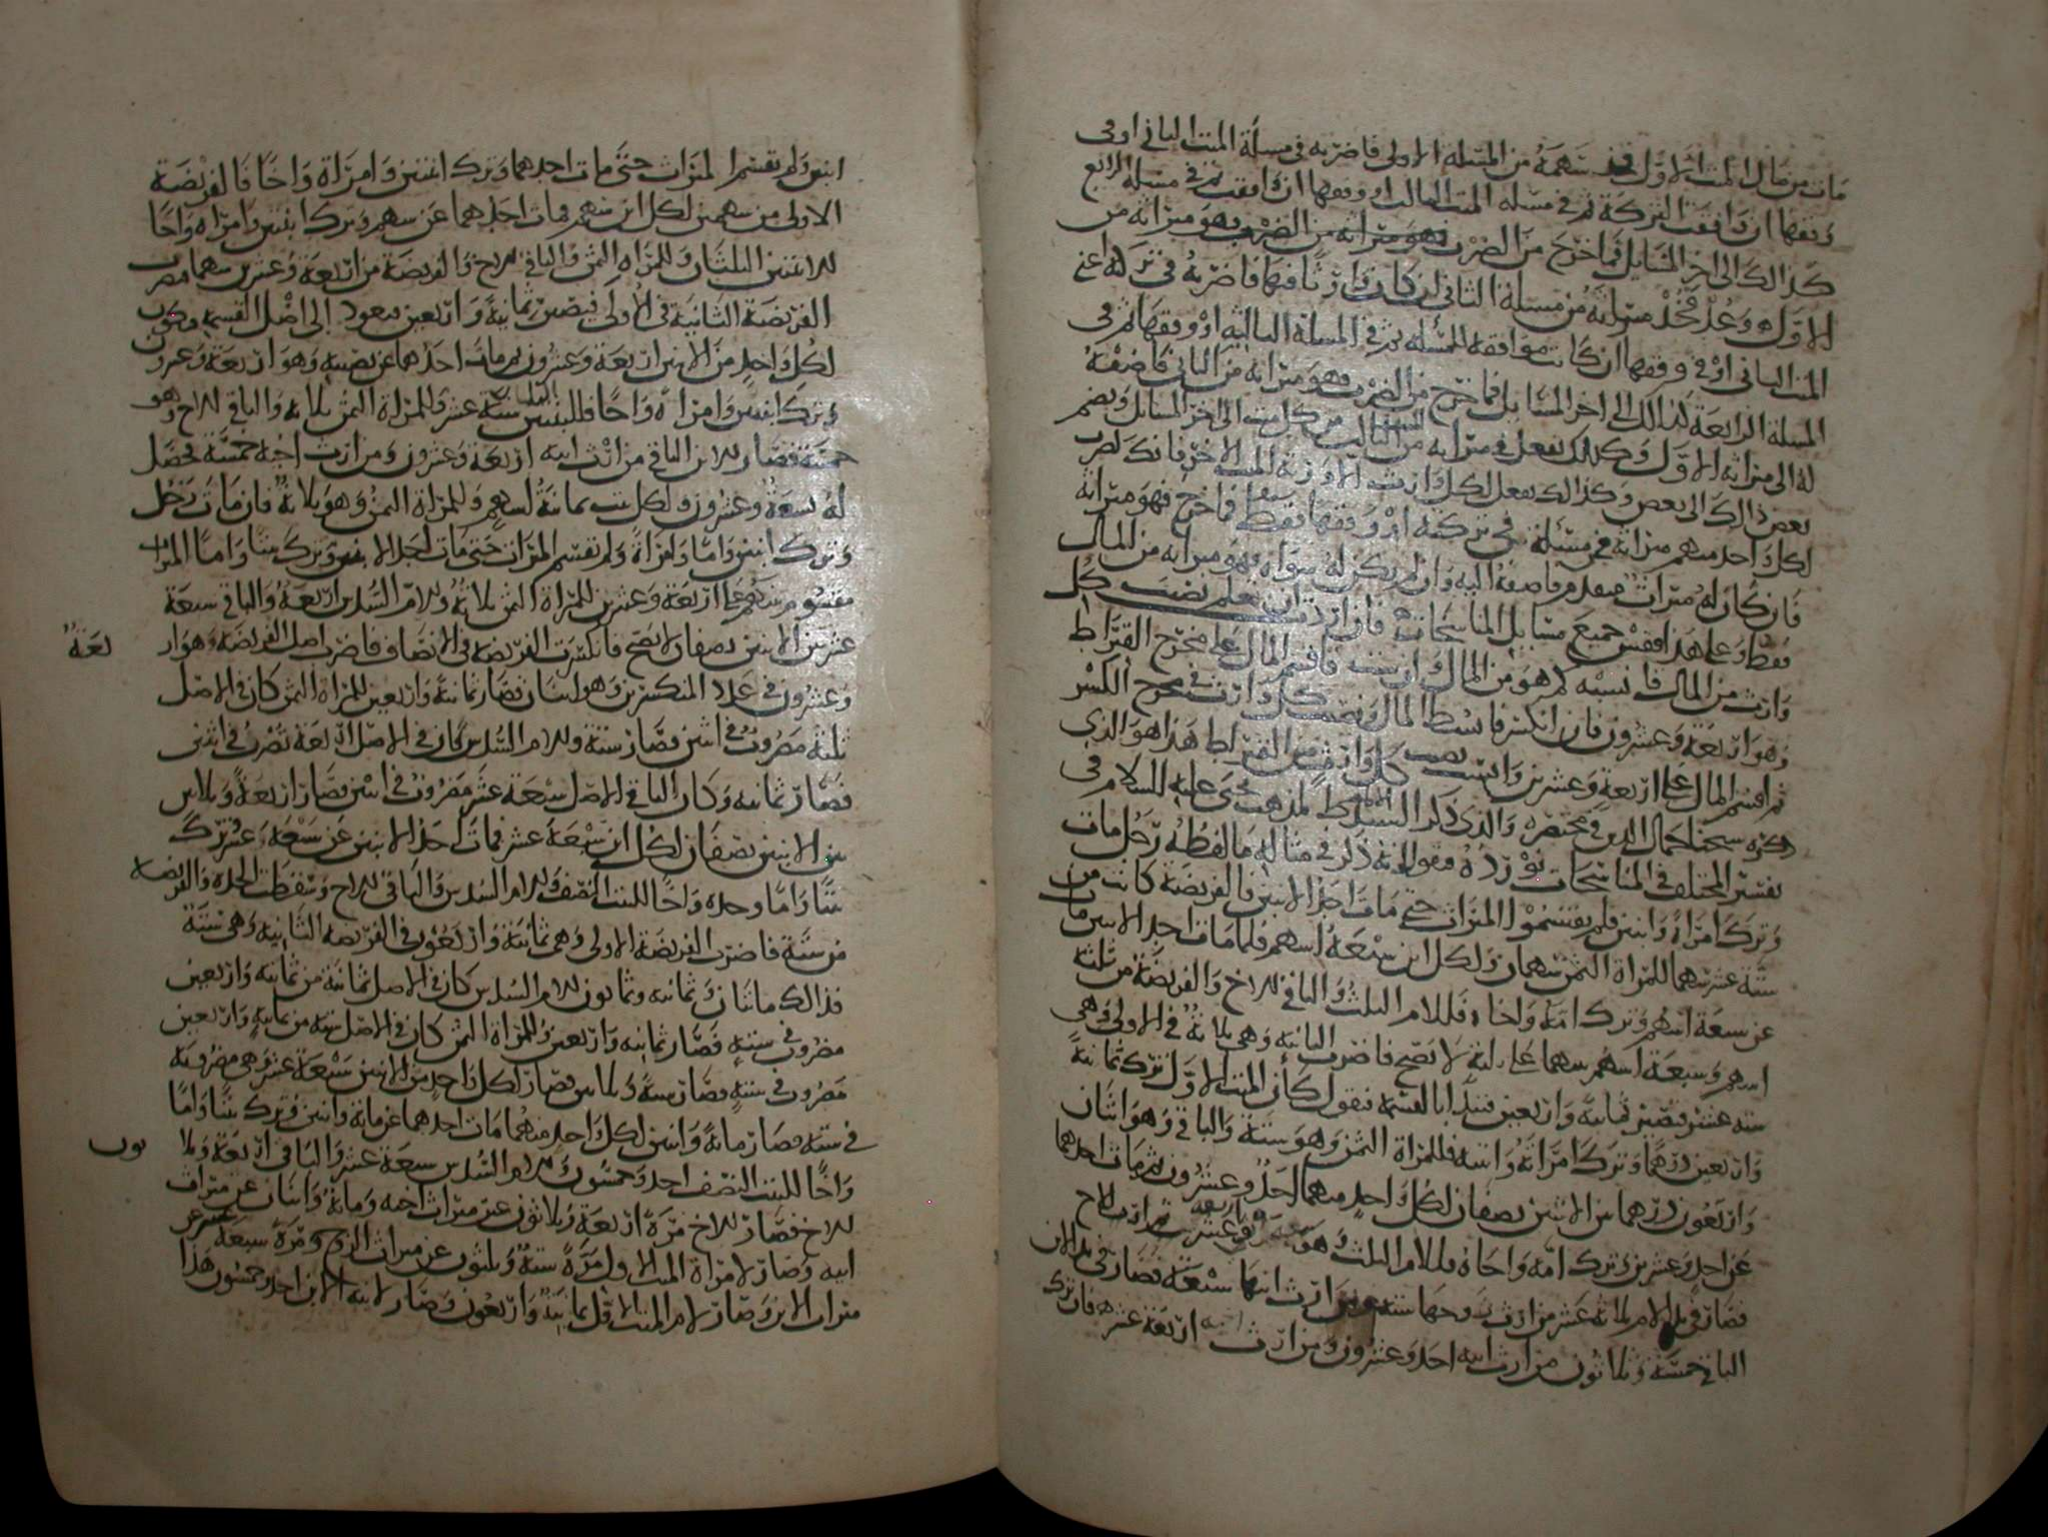 مات من مال الميت الاول فخذ سهمه من المسئلة الاولى فاضربه في مسئلة الميت الثاني او في
وفقها ان وافقت التركة ثم في مسئلة الميت الثالث او وفقها ان وافقت ثم في مسئلة الرابع
كذالك الى اخر المسايل فما خرج من الضرب فهو ميراثه من
الاول وعد فخذ ميراثه من مسئلة الثاني ان كان وارثا فيها فاضربه في تركة اعني
الميت الثاني او في وفقها ان كانت موافقه للمسئلة ثم في المسئلة الثالثه او وفقها ثم في
المسئلة الرابعة كذالك الى اخر المسايل فما خرج من الضرب فهو ميراثه من الثاني فاضفه
له الى ميراثه الاول وكذلك تفعل في ميراثه من الثالث من كل ميت الى اخر المسايل ويضم
بعض ذالك الى بعض وكذالك تفعل لكل وارث الا ورثة الميت الاخر فانك تضرب
لكل واحد منهم ميراثه في مسئلة في تركته او وفقها فقط فما خرج فهو ميراثه
فان كان له ميراث متقدم فاضفه اليه وان لم يكن له سواه فهو ميراثه من المال
فقط وعلى هذا فقس جميع مسايل المناسخات فان اردت ان تعلم نصيب كل
وارث من المال فانسبه كم هو من المال وان شيت فاقسم المال على مخرج القيراط
وهو اربعة وعشرون فان انكسر فابسط المال ونصيب كل وارث في مخرج الكسر
ثم اقسم المال على اربعة وعشرين وانسب نصيب كل وارث من القيراط هذا هو الذي
ذكره شيخنا جمال الدين في مختصره والذي ذكر لمذهب يحيى عليه السلام في
تفسير المختلف في المناسخات نورده وهو انه ذكر في مثاله ما لفظه رجل مات
وترك امراة وابنين فلم يقتسموا الميراث حتى مات احد الابنين فالفريضة كانت من
ستة عشر سهما للمراة الثمن سهمان ولكل ابن سبعة اسهم فلما مات احد الابنين مات
عن سبعة اسهم وترك امه واخاه فللام الثلث والباقي للاخ والفريضة من ثلثة
اسهم وسبعة اسهم سهما على ثلثة لا تصح فاضرب الثانيه وهي ثلاثة في الاولى وهي
ستة عشر فتصير ثمانية واربعين فتبدا بالقسمة فتقول كان الميت الاول ترك ثمانية
واربعين درهما وترك امراته وابنيه فللمراة الثمن وهو ستة والباقي وهو اثنان
واربعون درهما بين الابنين نصفان لكل واحد منهما احد وعشرون ثم مات احدهما
عن احد وعشرين وترك امه واخاه فللام الثلث وهو سبعة
فصار في يد الام ثلاثة عشر من ارث زوجها ستة ومن ارث ابنها سبعة فصار في يد الابن
الباقي خمسة وثلاثون من ارث ابيه احد وعشرون ومن ارث اخيه اربعة عشر فان ترك
ابنين ولم تقتسم الميراث حتى مات احدهما وترك ابنتين وامراة واخا فالفريضة
الاولى من سهمين لكل ابن سهم فمات احدهما عن سهم وترك ابنتين وامراة واخا
للابنتين الثلثان وللمراة الثمن والباقي للاخ والفريضة من اربعة وعشرين سهما فتضرب
الفريضة الثانية في الاولى فيصير ثمانية واربعين فيعود الى اصل القسمه فيكون
لكل واحد من الابنين اربعة وعشرون ثم مات احدهما عن نصيبه وهو اربعة وعشرون
وترك ابنتين وامراة واخا فللبنتين الثلثان ستة عشر وللمراة الثمن ثلاثة والباقي للاخ وهو
خمسة فصار للابن الباقي من ارث ابيه اربعة وعشرون ومن ارث اخيه خمسة فحصل
له تسعة وعشرون ولكل بنت ثمانية اسهم وللمراة الثمن وهو ثلاثة فان مات رجل
وترك ابنين واما وامراة ولم تقتسم الميراث حتى مات احد الابنين وترك بنتا واما الميراث
مقسوم بينهم على اربعة وعشرين للمراة الثمن ثلاثة وللام السدس اربعة والباقي سبعة
عشر بين الابنين نصفان لا تصح فانكسرت الفريضة في الانصاف فاضرب اصل الفريضة وهو ار
بعة
وعشرون في عدد المنكسرين وهو اثنان فصار ثمانية واربعين للمراة الثمن كان في الاصل
ثلثة مضروب في اثنين فصار ستة وللام السدس كان في الاصل اربعة تضرب في اثنين
فصار ثمانيه وكان الباقي في الاصل سبعة عشر مضروب في اثنين فصار اربعة وثلاثين
بين الابنين نصفان لكل ابن سبعة عشر فمات احد الابنين عن سبعة عشر وترك
بنتا واما وجده واخا للبنت النصف وللام السدس والباقي للاخ وسقطت الجده والفريضه
من ستة فاضرب الفريضة الاولى وهي ثمانية واربعون في الفريضه الثانيه وهي ستة
فذالك مائتان وثمانيه وثمانون للام السدس كان في الاصل ثمانية من ثمانيه واربعين
مضروب في سته فصار ثمانيه واربعين وللمراة الثمن كان في الاصل سته من ثمانيه واربعين
مضروب في سته فصار ستة وثلاثين فصار لكل واحد من الابنين سبعة عشر وهي مضروبة
في سته فصار مائة واثنين لكل واحد منهما مات احدهما عن مائة واثنين وترك بنتا واما
واخا للبنت النصف احد وخمسون وللام السدس سبعة عشر والباقي اربعة وثلا
ثون
للاخ فصار للاخ مرة اربعة وثلاثون عن ميراث اخيه ومائة واثنان عن ميراث
ابيه وصار لامراة الميت الاول مرة ستة وثلثون عن ميراث الزوج ومرة سبعة عشر عن
ميراث الابن وصار لام الميت الاول ثمانية واربعون وصار لابنة الابن احد وخمسون هذا